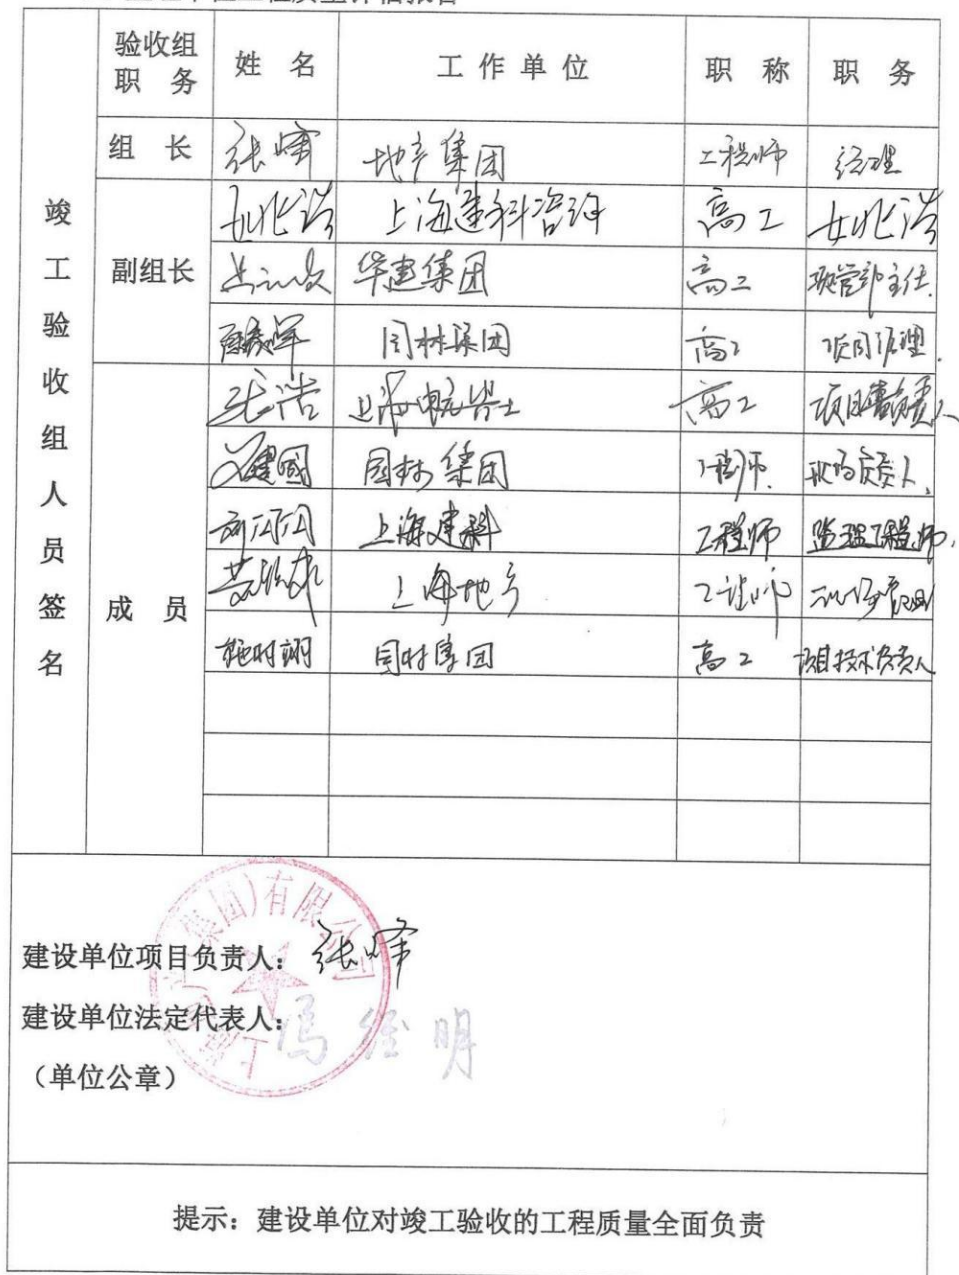 验收组
职 务
姓 名
工作单位
职 称
职 务
竣工验收组人员签名
组 长
张峰 地产集团 工程师 经理
副组长
上海建科咨询 高工
华建集团 高工 主任
园林集团 高工 项目经理
成 员
张浩 上海 高工 项目负责人
建國 园林集团 工程师 现场负责人
上海建科 工程师 监理工程师
上海地产 工程师
施时翊 园林集团 高工 项目技术负责人
集团)有限公司
上海
建设单位项目负责人: 张峰
建设单位法定代表人: 冯经明
(单位公章)
提示: 建设单位对竣工验收的工程质量全面负责